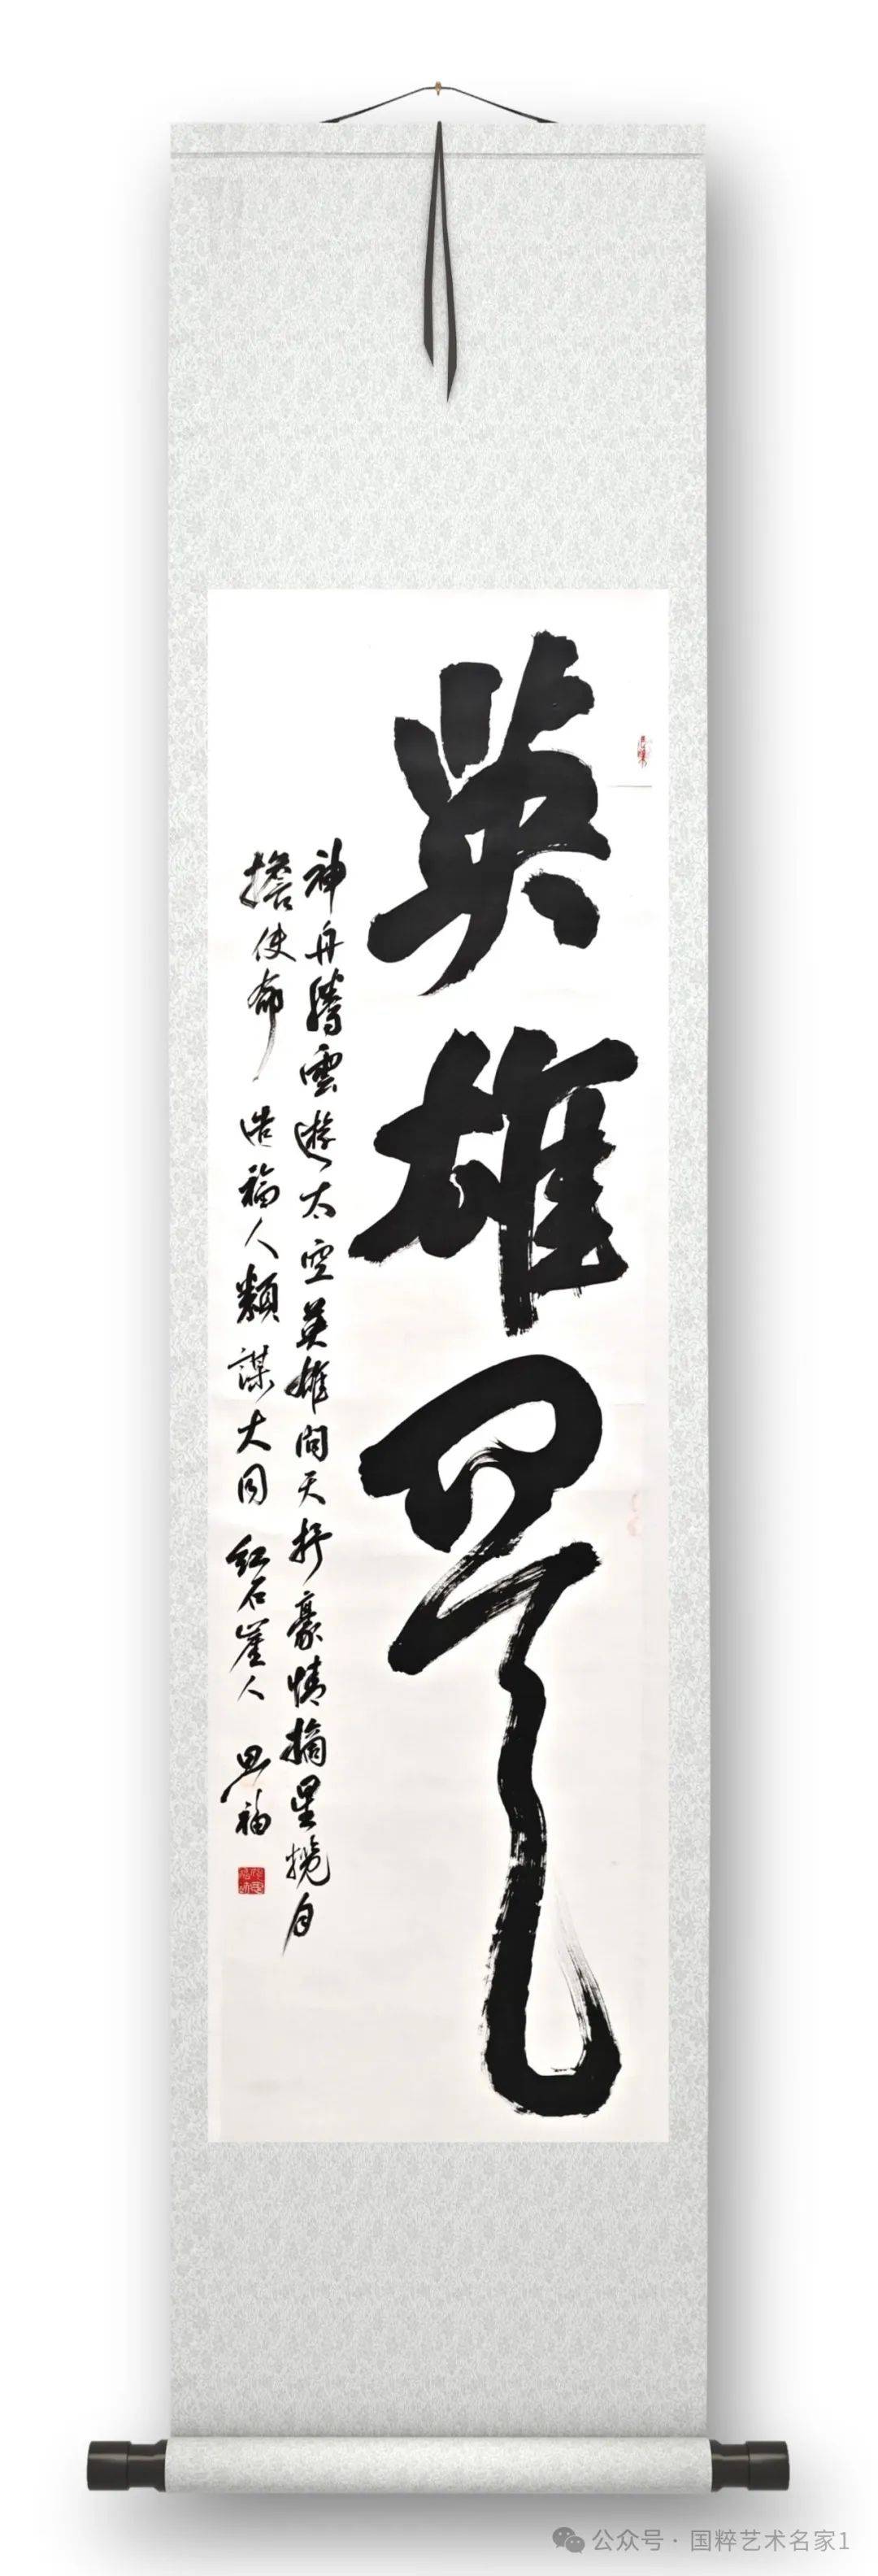 英雄
神舟騰雲遊太空英雄問天抒豪情摘星揽月
擔使命 造福人類謀大同 紅石崖人 福
公众号 · 国粹艺术名家1